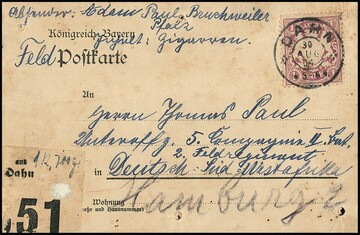 Absender: Adam Paul, Bruchweiler
Pfalz
Königreich Bayern
Inhalt: Zigarren.
Feld Postkarte
DAHN
30
AUG
An
Herrn Thomas Paul
Unteroffz. 5. Compagnie II. Bat.
2. Feld Regiment
in Deutsch Süd Westafrika
Hamburg 7
Wohnung
(Straße und Hausnummer)
aus
Dahn
51